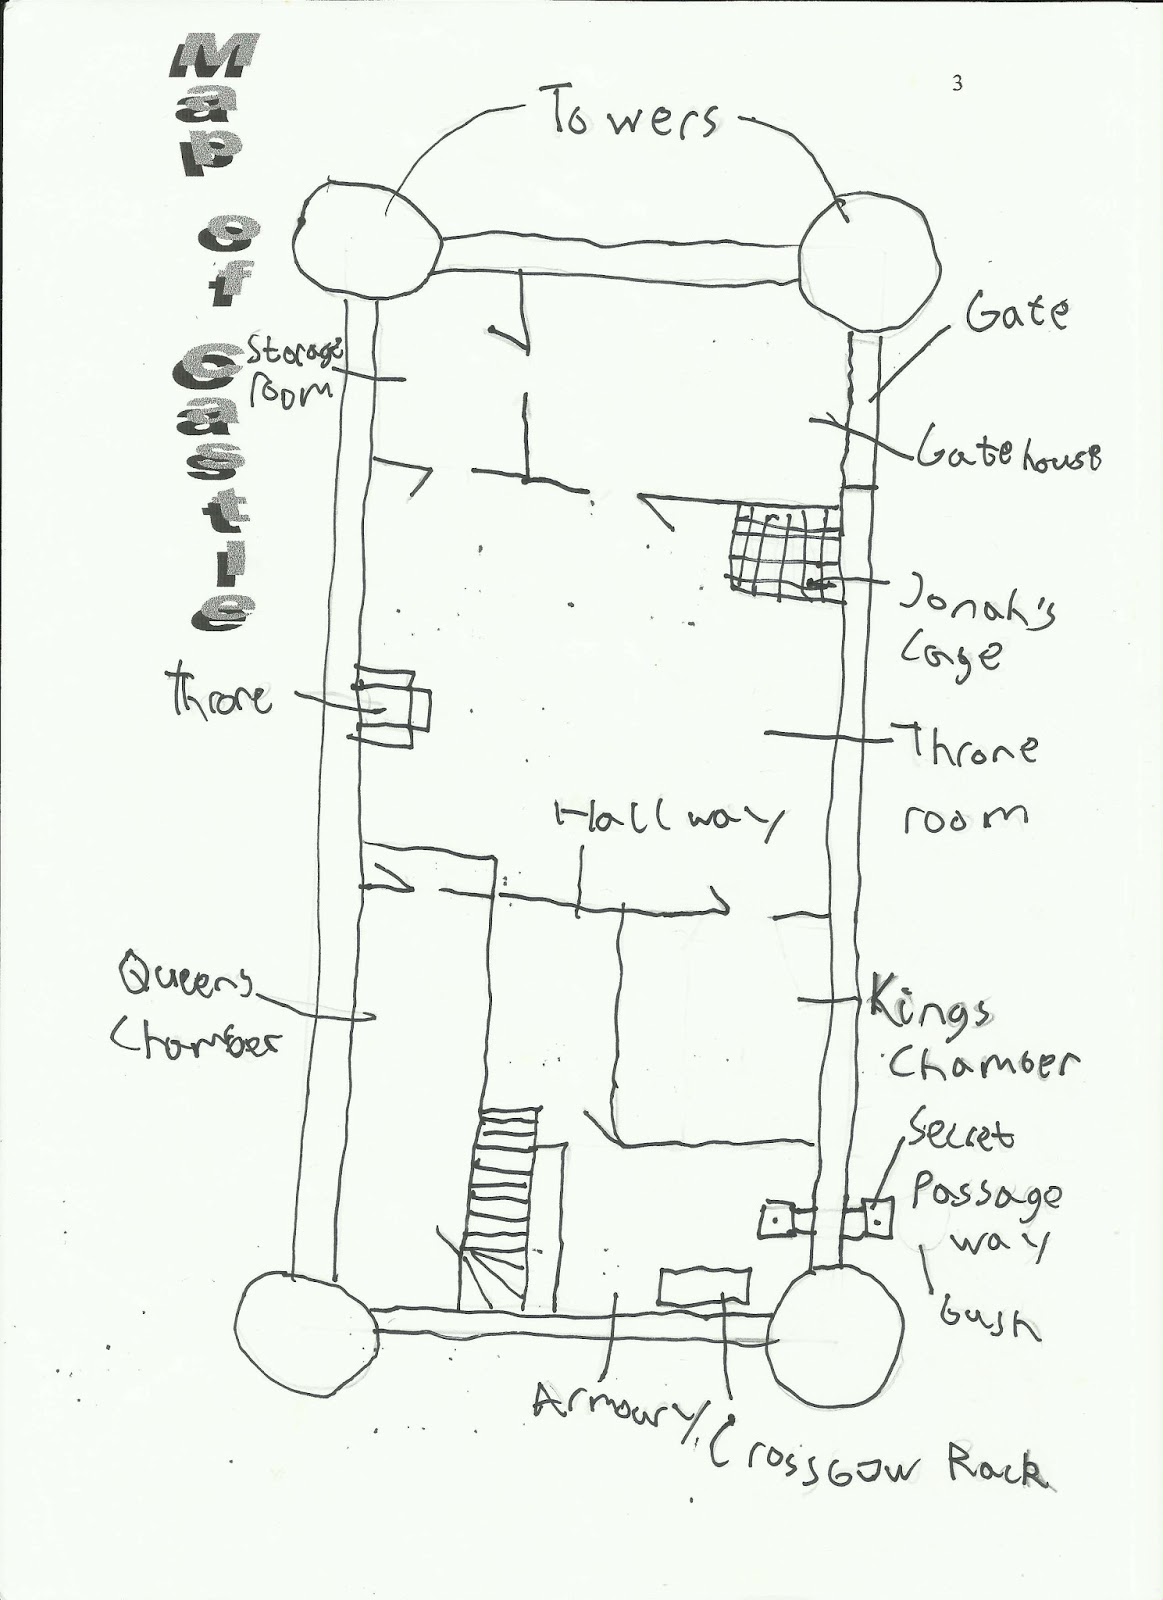 Map of Castle
3
Towers
Gate
Storage
room
Gatehouse
Jonah's
Cage
Throne
Throne
room
Hallway
Queens
Chamber
Kings
Chamber
Secret
Passage
way
Armoury/Crossbow Rack